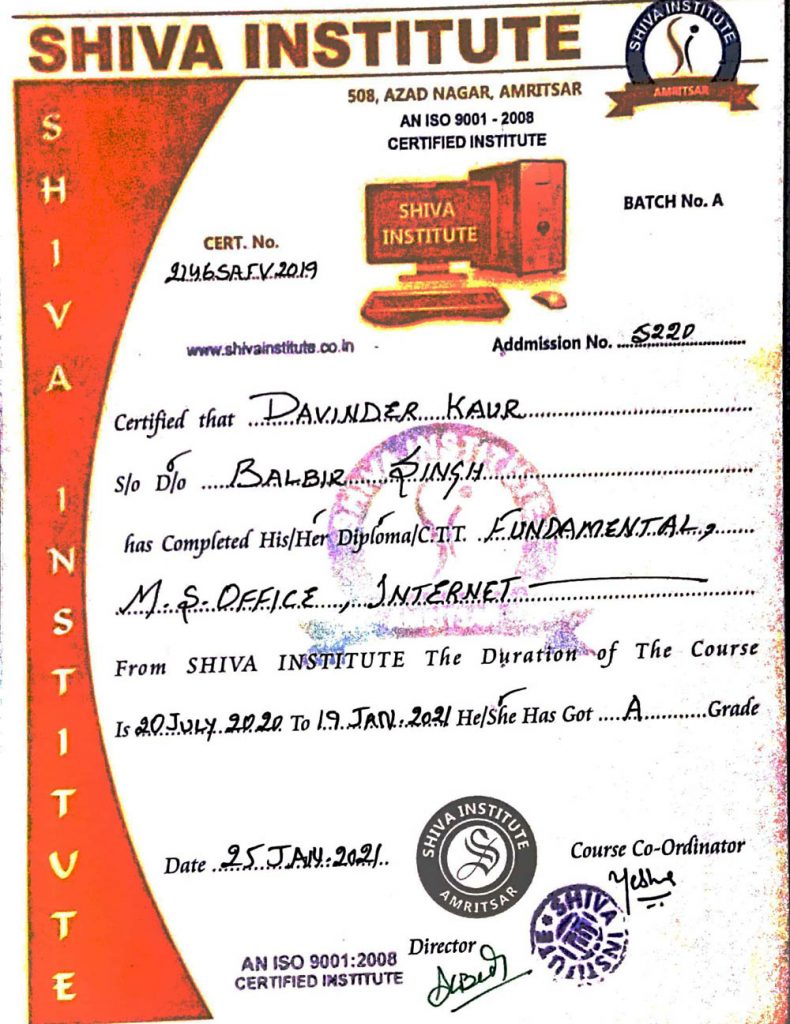 SHIVA INSTITUTE
SHIVA INSTITUTE
AMRITSAR
508, AZAD NAGAR, AMRITSAR
AN ISO 9001 - 2008
CERTIFIED INSTITUTE
SHIVA INSTITUTE
SHIVA
INSTITUTE
BATCH No. A
CERT. No.
2146SAFV2019
www.shivainstitute.co.in
Addmission No. 5220
Certified that DAVINDER KAUR
S/o D/o BALBIR SINGH
has Completed His/Her Diploma/C.T.T. FUNDAMENTAL,
M.S. OFFICE, INTERNET
From SHIVA INSTITUTE The Duration of The Course
Is 20 JULY 2020 To 19 JAN. 2021 He/She Has Got A Grade
SHIVA INSTITUTE
SHIVA INSTITUTE
AMRITSAR
Date 25 JAN. 2021
Course Co-Ordinator
SHIVA INSTITUTE
Director
AN ISO 9001:2008
CERTIFIED INSTITUTE